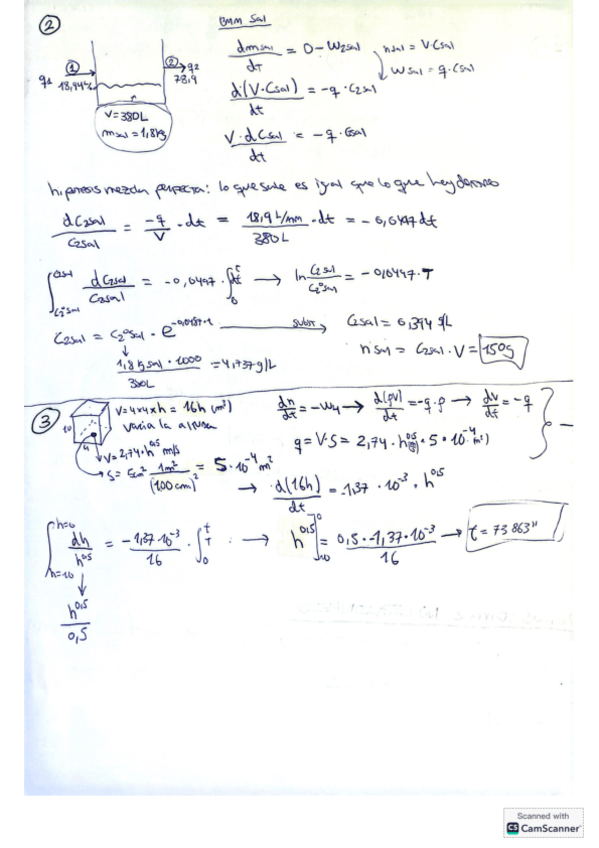 ② Bmm Sal
① ② q2
q1 18,94%
78,9
V=380L
msal=1,8kg
dmsal/dT = 0 - W2sal
nsal = V·Csal
Wsal = q·Csal
d(V·Csal)/dt = -q·C2sal
V·dCsal/dt = -q·Csal
hipotesis mezcla perfecta: lo que sale es igual que lo que hay dentro
dC2sal/C2sal = -q/V · dt = 18,9 L/min/380L · dt = -0,0497dt
∫ dC2sal/C2sal = -0,0497 · ∫ dt → ln C2sal/C2°sal = -0,0497·T
C2sal = C2°sal · e → subst C2sal = 0,394 g/L
1,8kg sal · 1000/380L = 4,737g/L
nsal = C2sal·V = 150g
③ V=4x4xh = 16h (m³)
varia la altura
10
4
V=2,74·h^0,5 m/s
S= 5cm² · 1m²/(100cm)² = 5·10^-4 m²
dn/dt = -W4 → d(ρV)/dt = -q·ρ → dV/dt = -q
q = V·S = 2,74·h^0,5 · 5·10^-4 m²)
→ d(16h)/dt = -1,37·10^-3 · h^0,5
∫ h=0 h=10 dh/h^0,5 = -1,37·10^-3/16 · ∫ t 0 → h^0,5 ] 0 10 = 0,5·-1,37·10^-3/16 → t = 73863"
h^0,5/0,5
Scanned with
CS CamScanner